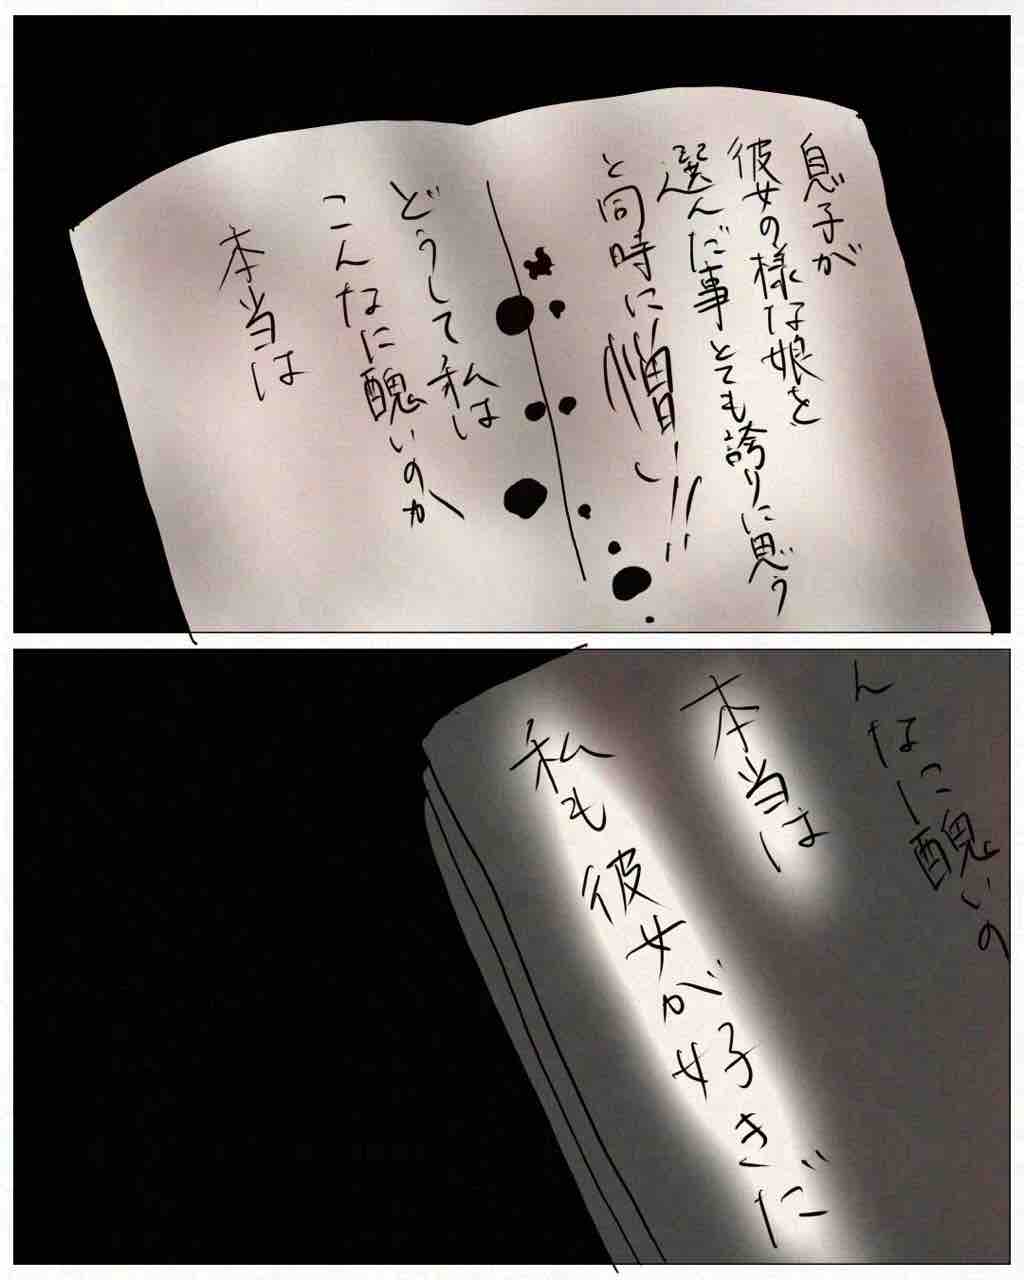 息子が
彼女の様な娘を
選んだ事とても誇りに思う
と同時に憎い!!
どうして私は
こんなに醜いのか
本当は
んなに醜いの
本当は
私も彼女が好きだ